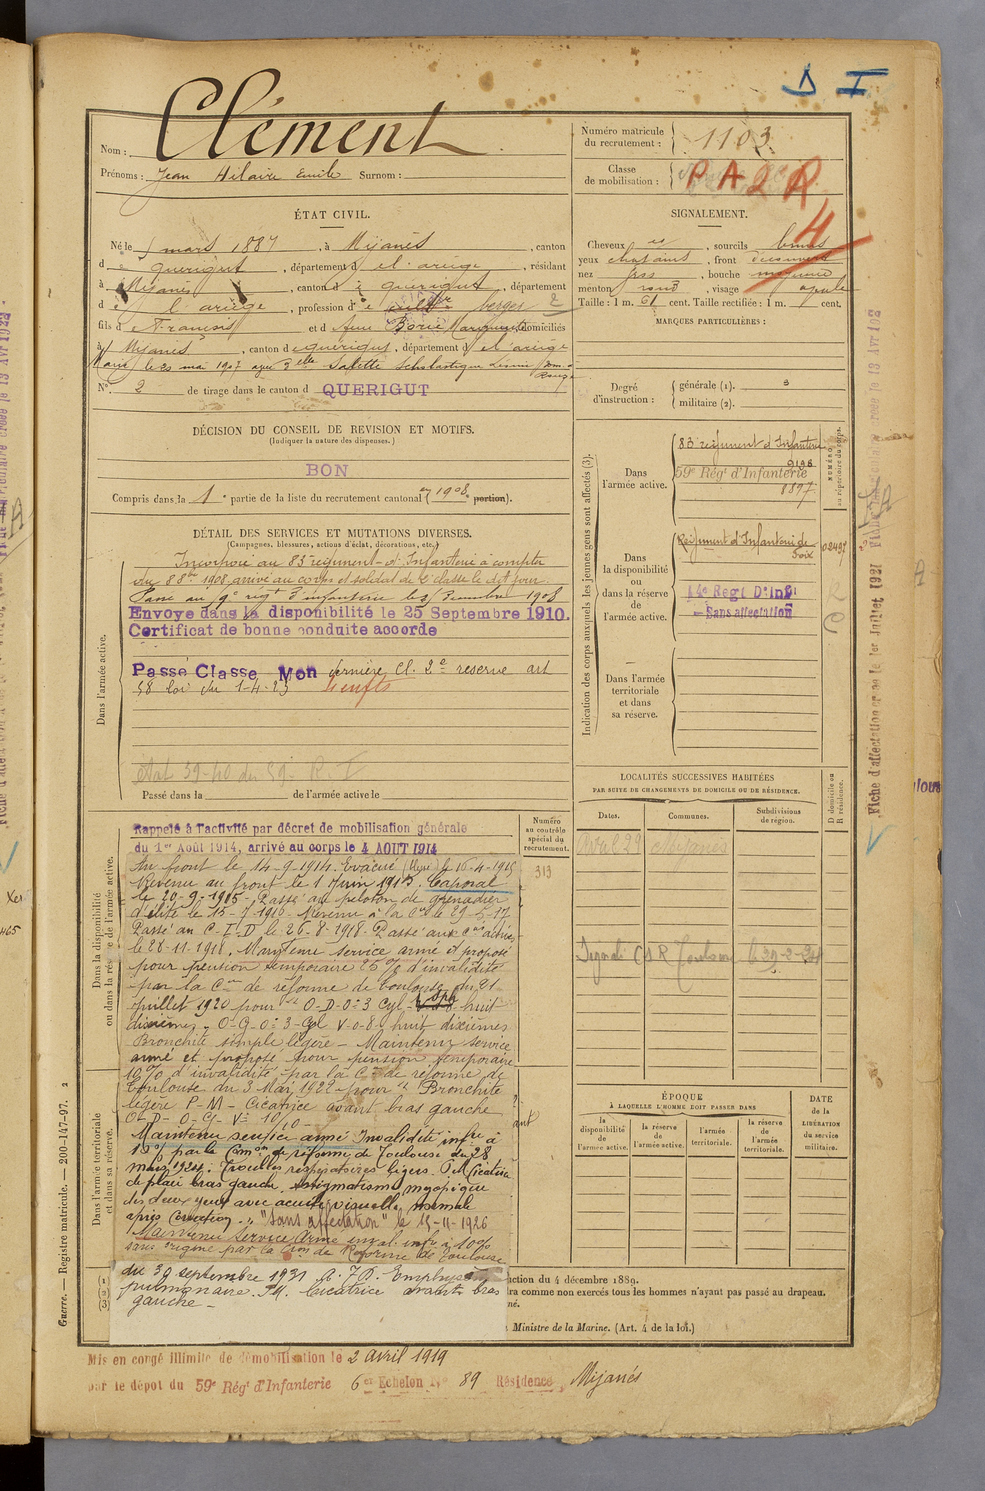 D I
Nom : Clément
Prénoms : Jean Hilaire Emile Surnom :
Numéro matricule du recrutement : 1103
Classe de mobilisation : PA2R
4
ÉTAT CIVIL.
Né le mars 1887, à Mijanès, canton
d e quérigut, département d e l'ariège, résidant
à Mijanès, canton d e quérigut, département
d e l'ariège, profession d e berger 2
fils d e François et d Anne Marie Marguerite domiciliés
à Mijanès, canton d e quérigut, département d e l'ariège
Marié le 20 mai 1907 avec Delle Scholastique
N° 2 de tirage dans le canton d QUERIGUT
SIGNALEMENT.
Cheveux, sourcils bruns
yeux chatains, front découvert
nez gros, bouche moyenne
menton rond, visage ovale
Taille : 1 m. 61 cent. Taille rectifiée : 1 m. cent.
MARQUES PARTICULIÈRES :
Degré d'instruction :
générale (1). 3
militaire (2).
DÉCISION DU CONSEIL DE REVISION ET MOTIFS.
(Indiquer la nature des dispenses.)
BON
Compris dans la 1e partie de la liste du recrutement cantonal (en 1908 portion).
DÉTAIL DES SERVICES ET MUTATIONS DIVERSES.
(Campagnes, blessures, actions d'éclat, décorations, etc.)
Dans l'armée active.
Incorporé au 83e régiment d'Infanterie à compter
du 8 8bre 1908, arrivé au corps et soldat de 2e classe le dit jour
Passé au 9e régt d'infanterie le
Envoyé dans la disponibilité le 25 Septembre 1910.
Certificat de bonne conduite accordé
Passé Classe Mon dernière Cl. 2e réserve art
58 loi du 1-4-23
état 39-40 du 59e R.I
Passé dans la de l'armée active le
Indication des corps auxquels les jeunes gens sont affectés (3).
Dans l'armée active.
83 régiment d'Infanterie
9196
59e Rég' d'Infanterie
8897
NUMÉRO au répertoire du corps.
Dans la disponibilité ou dans la réserve de l'armée active.
Régiment d'Infanterie de Foix
02497
14e Regt D'Infi
- Sans affectation
Dans l'armée territoriale et dans sa réserve.
LOCALITÉS SUCCESSIVES HABITÉES
PAR SUITE DE CHANGEMENTS DE DOMICILE OU DE RÉSIDENCE.
Dates. Communes. Subdivisions de région. D domicile ou R résidence.
Avril 29 Mijanès
Numéro au contrôle spécial du recrutement.
313
Dans la disponibilité ou dans la réserve de l'armée active.
Rappelé à l'activité par décret de mobilisation générale
du 1er Août 1914, arrivé au corps le 4 AOUT 1914
Au front le 14-9-1914. Evacué le 16-4-1915
Revenu au front le 1 Juin 1915. Caporal
le 20-9-1915. Passé au peloton de grenadier
d'élite le 15-7-1916. Revenu à la Cie le 29-5-17
Passé au C-I-D le 26-8-1918. Passé aux Cies actives
le 28-11-1918. Maintenu service armé et proposé
pour pension temporaire 25 % d'invalidité
par la Con de réforme de Toulouse du 21
juillet 1920 pour "O-D-O=3 Cyl huit
dixièmes, O-G-O=3-Cyl V-0-8 huit dixièmes
Bronchite simple légère - Maintenu service
armé et proposé pour pension temporaire
10 % d'invalidité par la Con de réforme de
Toulouse du 3 Mai 1922 pour "Bronchite
légère P-M- Cicatrice avant bras gauche
O-D-O-G-V= 10/10
Dans l'armée territoriale et dans sa réserve.
Maintenu service armé Invalidité infre à
10% par la Comon de réforme de Toulouse du 28
mars 1924. Troubles respiratoires légers. P.M Cicatrice
de plaie bras gauche. Astigmatisme myopique
des deux yeux avec acuité visuelle normale
après correction. "Sans affectation" le 15-11-1926
Maintenu Service Armé inval. infre à 10%
sans origine par la Con de Réforme de Toulouse
du 30 septembre 1931 Emphysème
pulmonaire. P.M. Cicatrice avant bras
gauche -
ÉPOQUE
À LAQUELLE L'HOMME DOIT PASSER DANS
la disponibilité de l'armée active. la réserve de l'armée active. l'armée territoriale. la réserve de l'armée territoriale.
DATE de la LIBÉRATION du service militaire.
(1)
(2)
(3)
ction du 4 décembre 1889.
ra comme non exercés tous les hommes n'ayant pas passé au drapeau.
né.
Ministre de la Marine. (Art. 4 de la loi.)
Mis en congé illimité de démobilisation le 2 avril 1919
par le dépôt du 59e Rég' d'Infanterie 6e Echelon N° 89 Résidence, Mijanès
Guerre. — Registre matricule. — 200-147-97. 2
Fiche d'affectation créée le 1er Juillet 1921